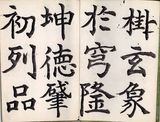 掛玄象
於穹隆
坤德肇
初列品